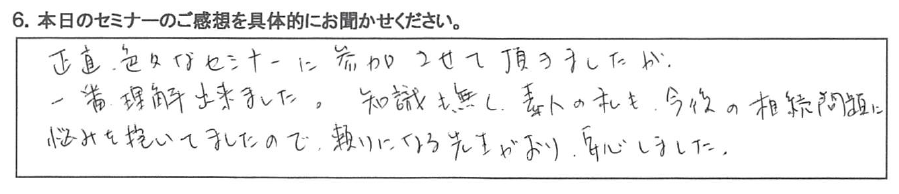 6. 本日のセミナーのご感想を具体的にお聞かせください。
正直、色々なセミナーに参加させて頂きましたが、
一番理解出来ました。知識も無し、素人の私も、今後の相続問題に
悩みを抱いてましたので、頼りになる先生がおり、安心しました。